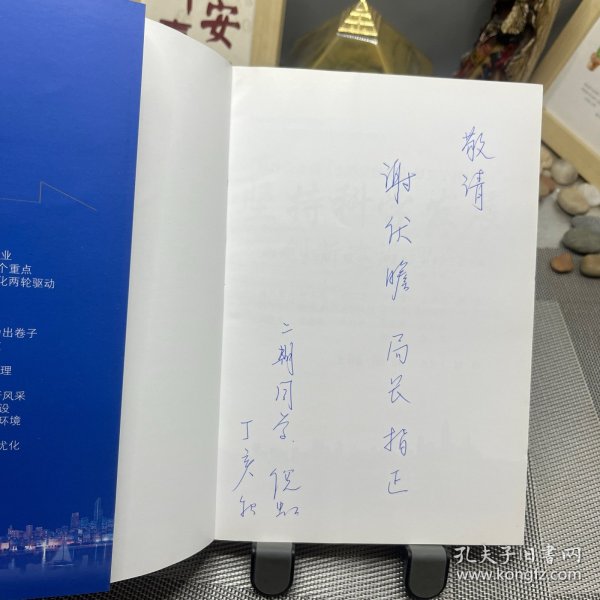 敬请
谢伏瞻 局长指正
二期同学 倪虹
丁亥秋
安
业
个重点
化两轮驱动
出卷子
理
风采
设
环境
优化
孔夫子旧书网
www.kongfz.com